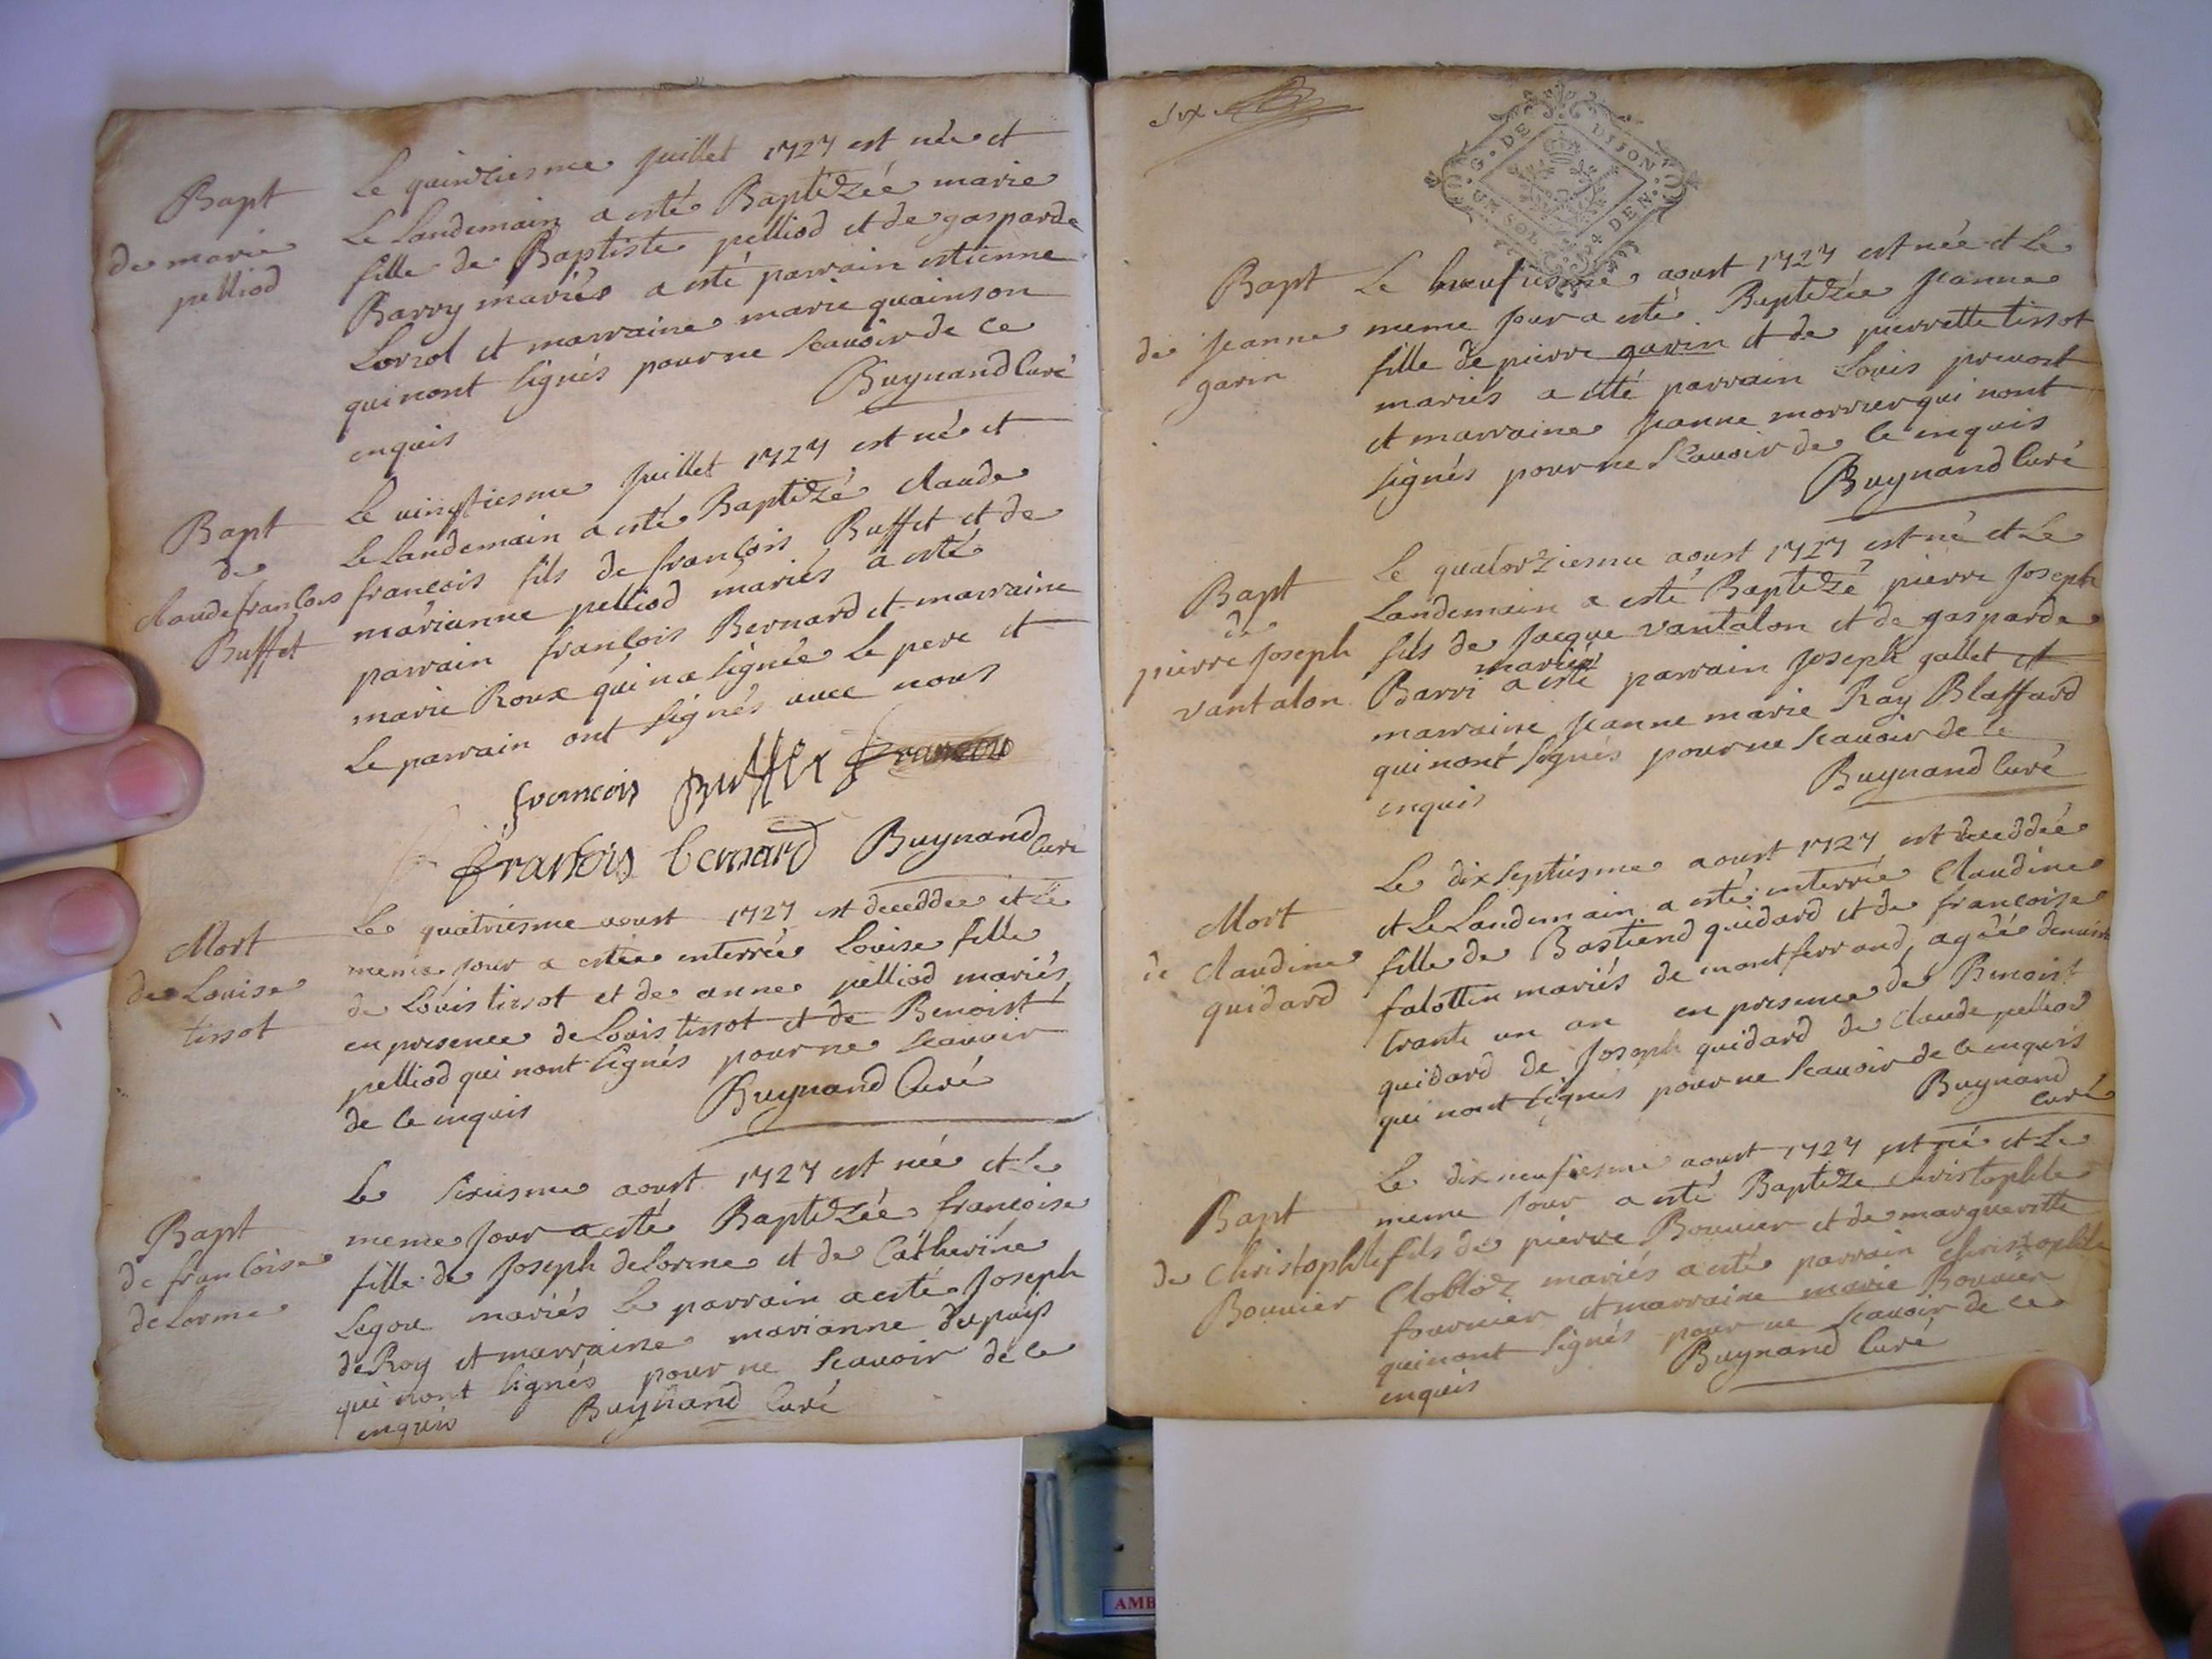 Bapt
de marie
pelliod
Le quinziesme juillet 1727 est née et
Le Landemain a esté Baptizée marie
fille de Baptiste pelliod et de gasparde
Barry mariés a esté parrain estienne
Lorzol et marraine marie quainson
qui nont signés pour ne scauoir de ce
enquis
Buynand Curé
Bapt
de
claude francois
Buffet
Le uingtiesme juillet 1727 est né et
Le Landemain a esté Baptizé claude
francois fils de francois Buffet et de
marianne pelliod mariés a esté
parrain francois Bernard et marraine
marie Roux qui na signée Le pere et
Le parrain ont signés auec nous
francois Buffet
francois bernard Buynand Curé
Mort
de Louise
tissot
Le quatriesme aoust 1727 est deceddée et Le
meme jour a estée enterrée Louise fille
de Louis tissot et de anne pelliod mariés
en presence de Louis tissot et de Benoist
pelliod qui nont signés pour ne scauoir
de ce enquis
Buynand Curé
Bapt
de francoise
deLorme
Le sixiesme aoust 1727 est née et Le
meme jour a esté Baptizée francoise
fille de Joseph deLorme et de Catherine
Legou mariés Le parrain a esté Joseph
deRoy et marraine marianne dupuys
qui nont signés pour ne scauoir de ce
enquis
Buynand Curé
six
G. DE DIJON
UN SOL 4 DEN.
Bapt
de jeanne
garin
Le neufiesme aoust 1727 est née et Le
meme jour a esté Baptizée jeanne
fille de pierre garin et de pierrette tissot
mariés a esté parrain Louis preuost
et marraine jeanne morrier qui nont
signés pour ne scauoir de ce enquis
Buynand Curé
Bapt
de
pierre joseph
vantalon
Le quatorziesme aoust 1727 est né et Le
Landemain a esté Baptizé pierre joseph
fils de jacque vantalon et de gasparde
mariés
Barri a esté parrain joseph gallet et
marraine jeanne marie Ray Blaffard
qui nont signés pour ne scauoir de ce
enquis
Buynand Curé
Mort
de claudine
guidard
Le dixseptiesme aoust 1727 est deceddée
et Le Landemain a esté enterrée claudine
fille de Bastiend guidard et de francoise
falottin mariés de montferrand, agée denuiron
trante un an en presence de Benoist
guidard de Joseph guidard de claude pelliod
qui nont signés pour ne scauoir de ce enquis
Buynand
curé
Bapt
de Christophle
Bouuier
Le dixneufiesme aoust 1727 est né et Le
meme jour a esté Baptize christophle
fils de pierre Bouuier et de margueritte
Clobloz mariés a esté parrain christophle
fournier et marraine marie Bouuier
qui nont signés pour ne scauoir de ce
enquis
Buynand Curé
AMB